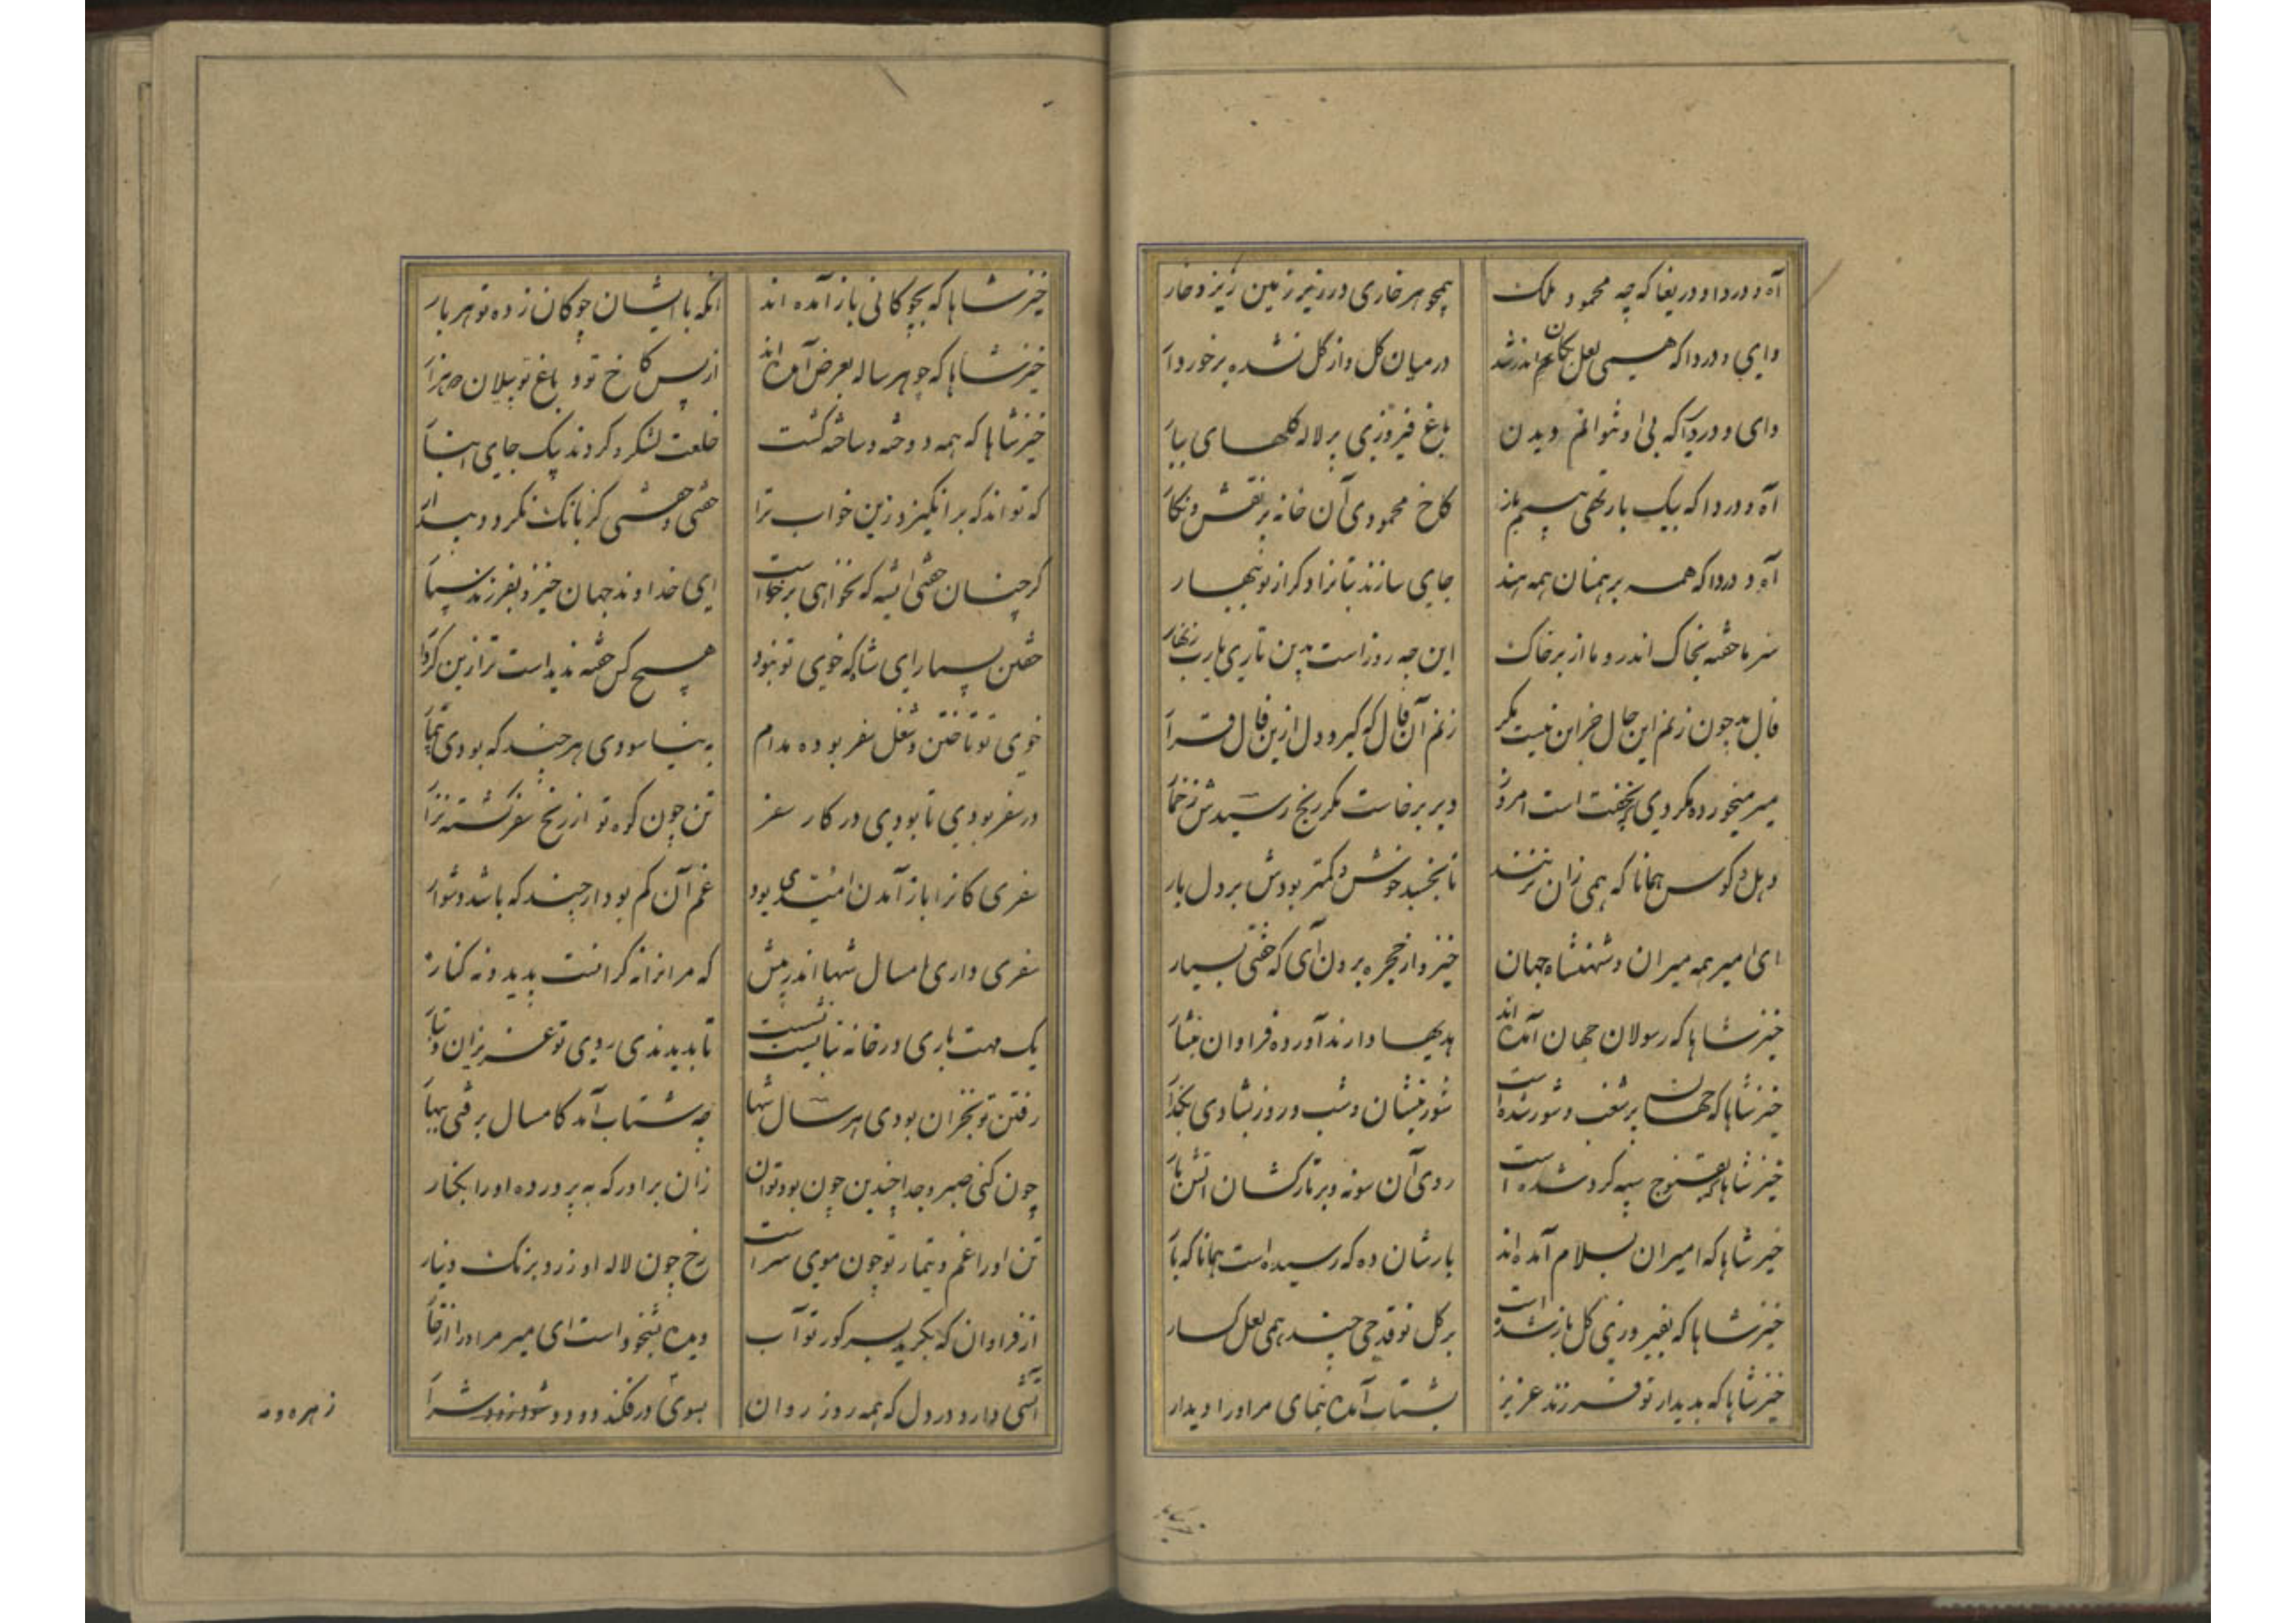 آه و دردا و دریغا که چه محمود ملک همچو هر خاری در زیر زمین ریزد خوار
وای و دردا که همی لعل بکان اندر شد در میان گل و از گل نشده برخوردار
وای و دردا که بی او نتوانم دیدن باغ فیروزی پر لاله گلهای ببار
آه و دردا که بیک بار تهی بینم باز کاخ محمودی آن خانه پر نقش و نگار
آه و دردا که همه برهمنان همه هند جای سازند بتان را دگر از نو ببهار
میر ما خفته بخاک اندر و ما از بر خاک این چه روزست بدین تاری یارب زنهار
فال بد چون زنم این حال جز این نیست مگر زنم آن فال که گیرد دل ازین فال قرار
میر می خورده مگر دی بخفتست امروز دیر برخاست مگر رنج رسیدش ز خمار
دهل و کوس همانا که همی زان نزنند تا بخسبد خوش و کمتر بودش بر دل بار
ای امیر همه میران و شهنشاه جهان خیز و از حجره برون آی که خفتی بسیار
خیز شاها که رسولان جهان آمده‌اند هدیها دارند آورده فراوان نثار
خیز شاها که جهان پر شغب و شور شده است شور بنشان و شب و روز بشادی بگذار
خیز شاها که بقنوج سپه گرد شده است روی آن سو نه و بر تارکشان آتش بار
خیز شاها که امیران بسلام آمده‌اند بارشان ده که رسیده است همانا گه بار
خیز شاها که بفیروزی گل باز شده است بر گل نو قدحی چند همی لعل گسار
خیز شاها که بدیدار تو فرزند عزیز بشتاب آمده بنمای مر او را دیدار
خیز شاها که بچوگانی باز آمده‌اند آنکه با ایشان چوگان زده تو هر بار
خیز شاها که چو هر ساله بعرض آمده‌اند از پس کاخ تو و باغ تو پیلان دو هزار
خیز شاها که همه دوخته و ساخته گشت خلعت لشکر و کردند بیک جای انبار
که تواند که برانگیزد زین خواب ترا خفتی و خفتنی کز بانگ نگردی بیدار
گر چنان خفتی ای شه که نخواهی برخاست ای خداوند جهان خیز و بفرزند سپار
خفتن بسیار ای شاه که خوی تو نبود هیچ کس خفته ندیده است ترا زین کردار
خوی تو تاختن و شغل سفر بوده مدام بنیاسودی هر چند که بودی بیمار
در سفر بودی تا بودی در کار سفر تن چون کوه تو از رنج سفر گشته نزار
سفری کان را باز آمدن امید بود غم آن کم بود ار چند که باشد دشوار
سفری داری امسال شها اندر پیش که مر آنرا نه کرانست پدید و نه کنار
یک دمت باری در خانه نبایست نشست تا بدیدندی روی تو عزیزان و تبار
رفتن تو بخزان بودی هر سال شها چه شتاب آمد کامسال برفتی ببهار
چون کنی صبر و جدا چندین چون بودتوان زان برادر که بپرورده او را بکنار
تن او را غم و تیمار تو چون موی سرست رخ چون لاله او زرد برنگ دینار
از فراوان که بگرید بسر گور تو آب دیده بشخوده است ای میر مر او را رخسار
آتشی دارد در دل که همه روز روان بسوی در فکند دود و شرار
زهره و مه